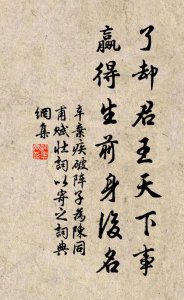 了却君王天下事
赢得生前身後名
辛棄疾破阵子為陳同
甫賦壯詞以寄之詞典
網集